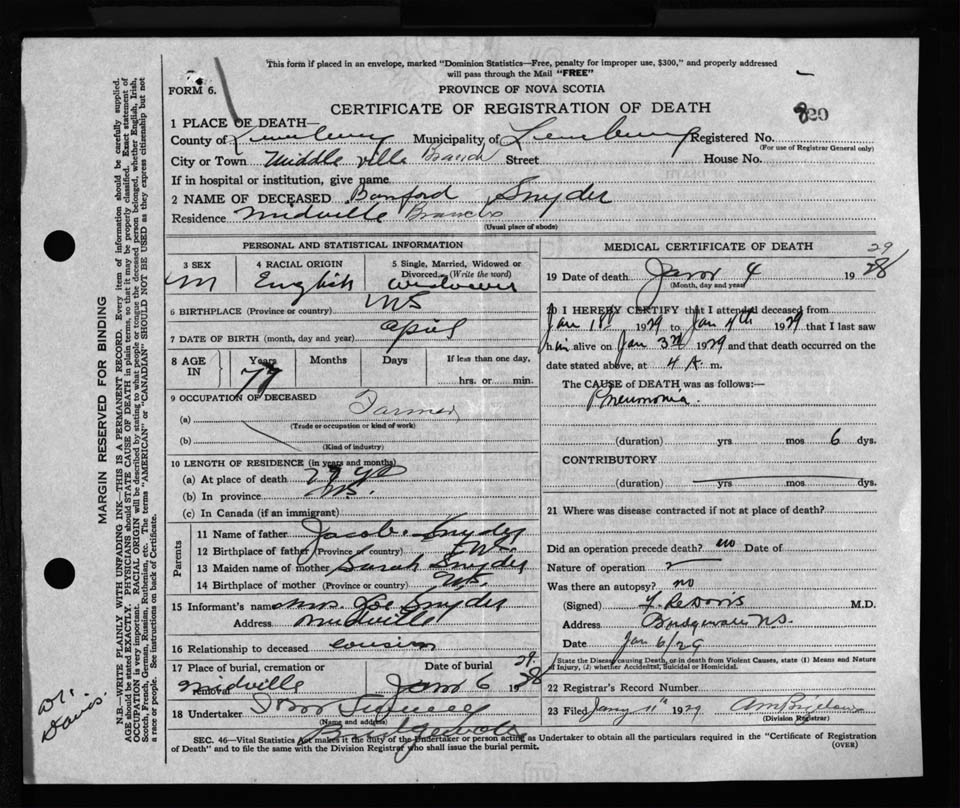 This form if placed in an envelope, marked "Dominion Statistics—Free, penalty for improper use, $300," and properly addressed
will pass through the Mail "FREE"
FORM 6.
PROVINCE OF NOVA SCOTIA
CERTIFICATE OF REGISTRATION OF DEATH
820
1 PLACE OF DEATH—
County of Lunenburg Municipality of Lunenburg Registered No.
(For use of Registrar General only)
City or Town Middleville Branch Street House No.
If in hospital or institution, give name
2 NAME OF DECEASED Bamford Snyder
Residence Midville Branch
(Usual place of abode)
PERSONAL AND STATISTICAL INFORMATION
3 SEX 4 RACIAL ORIGIN 5 Single, Married, Widowed or
Divorced. (Write the word)
M English Widower
6 BIRTHPLACE (Province or country) NS
7 DATE OF BIRTH (month, day and year) April
8 AGE IN Years Months Days If less than one day,
79 hrs. or min.
9 OCCUPATION OF DECEASED
(a) Farmer
(Trade or occupation or kind of work)
(b)
(Kind of industry)
10 LENGTH OF RESIDENCE (in years and months)
(a) At place of death 79 yr
(b) In province NS.
(c) In Canada (if an immigrant)
Parents
11 Name of father Jacob Snyder
12 Birthplace of father (Province or country) NS.
13 Maiden name of mother Sarah Snyder
14 Birthplace of mother (Province or country) NS.
15 Informant's name Mrs. Snyder
Address Midville
16 Relationship to deceased cousin
17 Place of burial, cremation or removal Date of burial
Midville Jan 6 1928 29
18 Undertaker
(Name and address)
Bridgewater
MEDICAL CERTIFICATE OF DEATH
19 Date of death Jan 4 1928 29
(Month, day and year)
20 I HEREBY CERTIFY that I attended deceased from
Jan 1st 1929 to Jan 4th 1929 that I last saw
him alive on Jan 3rd 1929 and that death occurred on the
date stated above, at 4 A. m.
The CAUSE of DEATH was as follows:—
Pneumonia.
(duration) yrs mos 6 dys.
CONTRIBUTORY
(duration) yrs mos dys.
21 Where was disease contracted if not at place of death?
Did an operation precede death? no Date of
Nature of operation
Was there an autopsy? no
(Signed) Davis M.D.
Address Bridgewater N.S.
Date Jan 6/29
State the Disease causing Death, or in death from Violent Causes, state (1) Means and Nature
of Injury, (2) whether Accidental, Suicidal or Homicidal.
22 Registrar's Record Number
23 Filed Jany 11th 1929
(Division Registrar)
SEC. 46—Vital Statistics Act makes it the duty of the Undertaker or person acting as Undertaker to obtain all the particulars required in the "Certificate of Registration
of Death" and to file the same with the Division Registrar who shall issue the burial permit.
(OVER)
MARGIN RESERVED FOR BINDING
N.B.—WRITE PLAINLY WITH UNFADING INK—THIS IS A PERMANENT RECORD. Every item of information should be carefully supplied.
AGE should be stated EXACTLY. PHYSICIANS should STATE CAUSE OF DEATH in plain terms, so that it may be properly classified. Exact statement of
OCCUPATION is very important. RACIAL ORIGIN will be described by stating to what people or tongue the deceased person belonged, whether English, Irish,
Scotch, French, German, Russian, Ruthenian, etc. The terms "AMERICAN" or "CANADIAN" SHOULD NOT BE USED as they express citizenship but not
a race or people. See instructions on back of Certificate.
Dr.
Davis